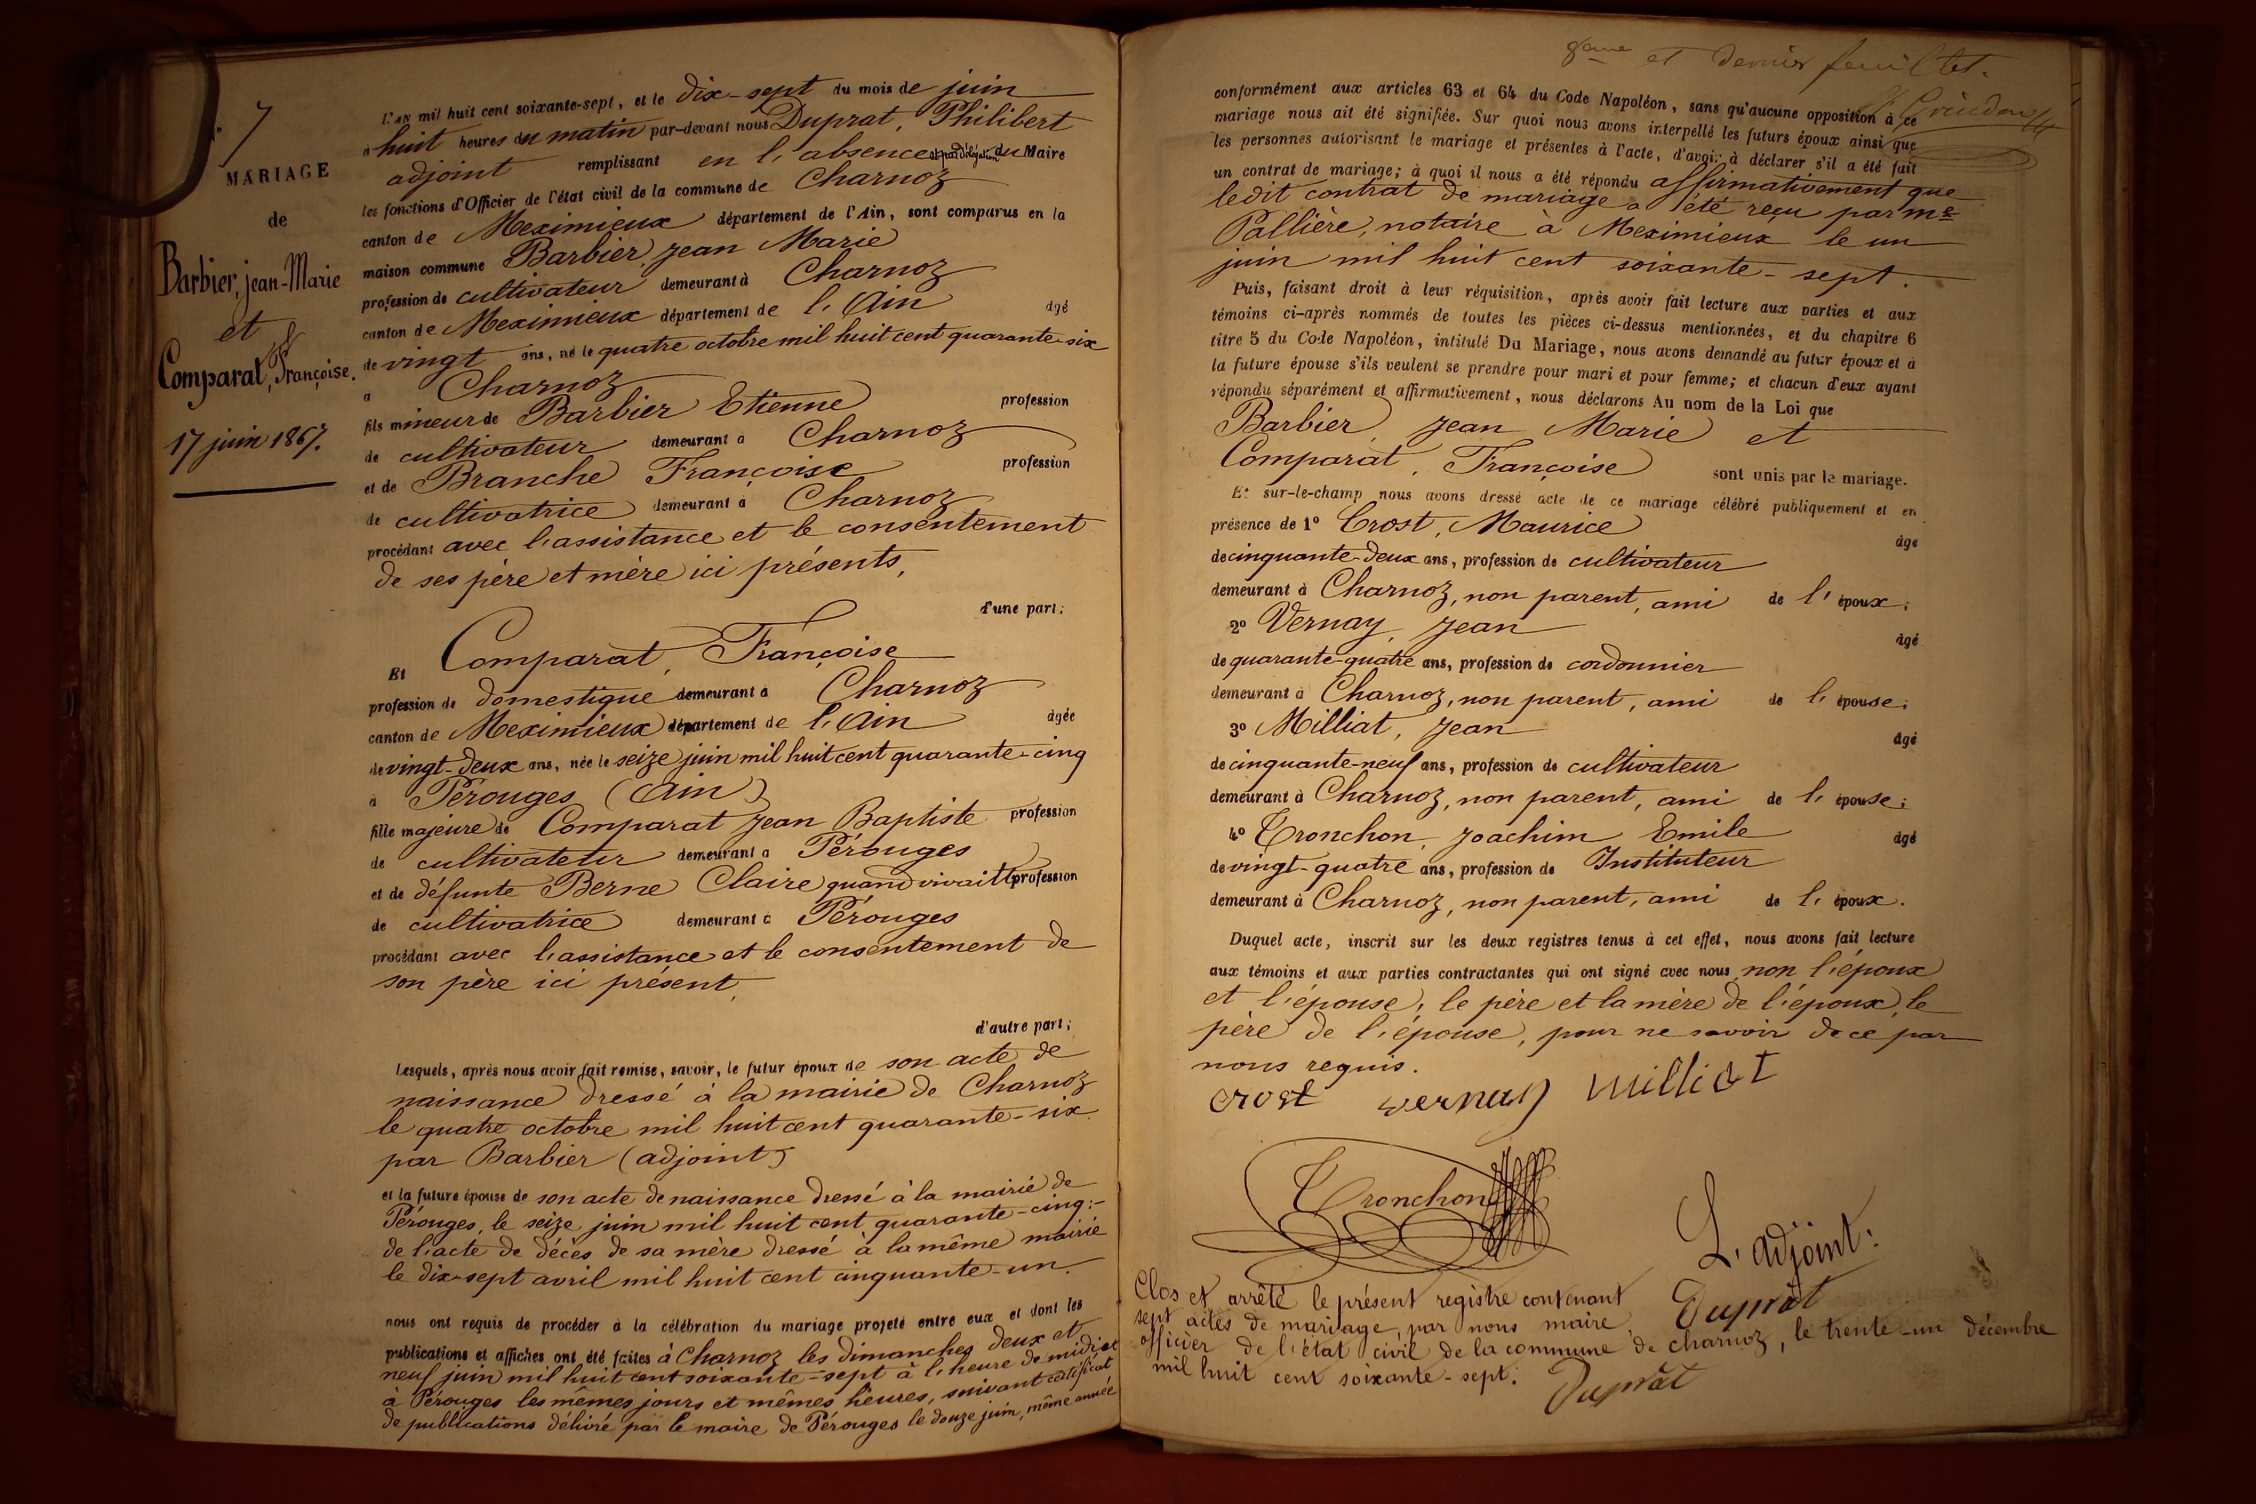 7
MARIAGE
de
Barbier, jean-Marie
et
Comparat, Françoise.
17 juin 1867.
L'AN mil huit cent soixante-sept, et le dix-sept du mois de juin
a huit heures du matin par-devant nous Duprat, Philibert
adjoint remplissant en l'absence et par délégation du Maire
les fonctions d'Officier de l'état civil de la commune de Charnoz
canton de Meximieux département de l'Ain, sont comparus en la
maison commune Barbier, jean Marie
profession de cultivateur demeurant à Charnoz
canton de Meximieux département de l'Ain âgé
de vingt ans, né le quatre octobre mil huit cent quarante-six
a Charnoz
fils mineur de Barbier Etienne profession
de cultivateur demeurant à Charnoz
et de Branche Françoise profession
de cultivatrice demeurant à Charnoz
procédant avec l'assistance et le consentement
de ses père et mère ici présents,
d'une part;
Et Comparat, Françoise
profession de domestique demeurant a Charnoz
canton de Meximieux département de l'Ain âgée
de vingt-deux ans, née le seize juin mil huit cent quarante-cinq
à Pérouges (Ain)
fille majeure de Comparat jean Baptiste profession
de cultivateur demeurant a Pérouges
et de défunte Berne Claire quand vivait profession
de cultivatrice demeurant à Pérouges
procédant avec l'assistance et le consentement de
son père ici présent,
d'autre part;
Lesquels, après nous avoir fait remise, savoir, le futur époux de son acte de
naissance dressé à la mairie de Charnoz
le quatre octobre mil huit cent quarante-six
par Barbier (adjoint)
et la future épouse de son acte de naissance dressé à la mairie de
Pérouges, le seize juin mil huit cent quarante-cinq:-
de l'acte de décès de sa mère dressé à la même mairie
le dix-sept avril mil huit cent cinquante-un.
nous ont requis de procéder à la célébration du mariage projeté entre eux et dont les
publications et affiches ont été faites à Charnoz les dimanches deux et
neuf juin mil huit cent soixante-sept à l'heure de midi et
à Pérouges les mêmes jours et mêmes heures, suivant certificat
de publications délivré par le maire de Pérouges le douze juin, même année
8ème et dernier feuillet.
conformément aux articles 63 et 64 du Code Napoléon, sans qu'aucune opposition à ce
mariage nous ait été signifiée. Sur quoi nous avons interpellé les futurs époux ainsi que
les personnes autorisant le mariage et présentes à l'acte, d'avoir à déclarer s'il a été fait
un contrat de mariage; à quoi il nous a été répondu affirmativement que
ledit contrat de mariage a été reçu par Me
Pallière, notaire à Meximieux le un
juin mil huit cent soixante-sept.
Puis, faisant droit à leur réquisition, après avoir fait lecture aux parties et aux
témoins ci-après nommés de toutes les pièces ci-dessus mentionnées, et du chapitre 6
titre 5 du Code Napoléon, intitulé Du Mariage, nous avons demandé au futur époux et à
la future épouse s'ils veulent se prendre pour mari et pour femme; et chacun d'eux ayant
répondu séparément et affirmativement, nous déclarons Au nom de la Loi que
Barbier, jean Marie et
Comparat, Françoise sont unis par le mariage.
Et sur-le-champ nous avons dressé acte de ce mariage célébré publiquement et en
présence de 1º Crost, Maurice âge
de cinquante-deux ans, profession de cultivateur
demeurant à Charnoz, non parent, ami de l'époux;
2º Vernay, jean âgé
de quarante-quatre ans, profession de cordonnier
demeurant à Charnoz, non parent, ami de l'épouse;
3º Milliat, jean âgé
de cinquante-neuf ans, profession de cultivateur
demeurant à Charnoz, non parent, ami de l'épouse;
4º Tronchon, joachim Emile âgé
de vingt-quatre ans, profession de Instituteur
demeurant à Charnoz, non parent, ami de l'époux.
Duquel acte, inscrit sur les deux registres tenus à cet effet, nous avons fait lecture
aux témoins et aux parties contractantes qui ont signé avec nous non l'époux
et l'épouse, le père et la mère de l'époux, le
père de l'épouse, pour ne savoir de ce par
nous requis.
crost vernay Milliat
Tronchon
L'adjoint:
Duprat
Clos et arrêté le présent registre contenant
sept actes de mariage, par nous maire,
officier de l'état civil de la commune de charnoz, le trente-un décembre
mil huit cent soixante-sept.
Duprat